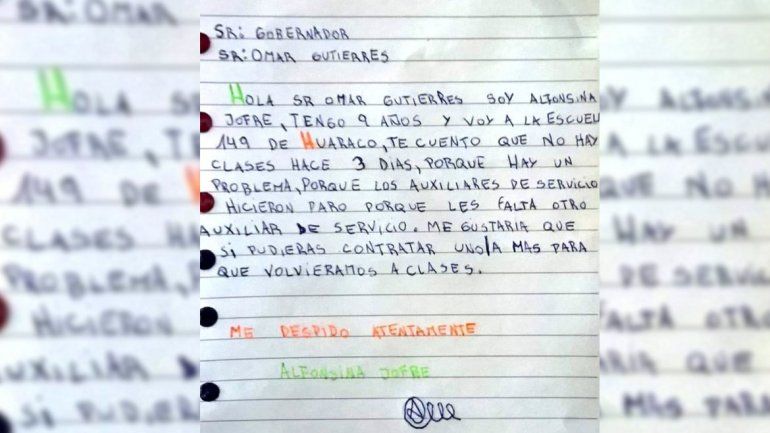 SR: GOBERNADOR
SR: OMAR GUTIERRES
HOLA SR OMAR GUTIERRES SOY ALFONSINA
JOFRE, TENGO 9 AÑOS Y VOY A LA ESCUEL
149 DE HUARACO, TE CUENTO QUE NO HAY
CLASES HACE 3 DIAS, PORQUE HAY UN
PROBLEMA, PORQUE LOS AUXILIARES DE SERVICIO
HICIERON PARO PORQUE LES FALTA OTRO
AUXILIAR DE SERVICIO. ME GUSTARIA QUE
SI PUDIERAS CONTRATAR UNO/A MAS PARA
QUE VOLVIERAMOS A CLASES.
ME DESPIDO ATENTAMENTE
ALFONSINA JOFRE